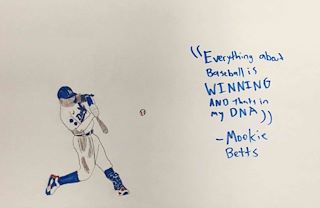 "Everything about
Baseball is
WINNING
AND thats in
my DNA"
- Mookie
Betts